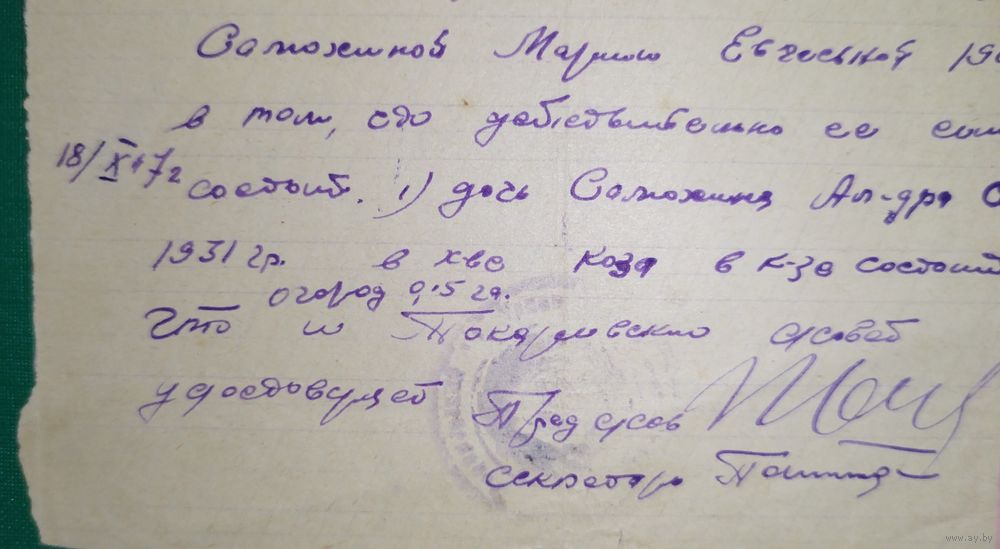 Саможиной Марии Евсеевной 19
в том, что действительно ее сем
18/X 47г состоит. 1) дочь Саможина Ал-дра
1931 гр. в х-ве коза в к-зе состоит
огород 0,15 га.
Что и сусовет
удостоверяет Пред с/сов
секретарь
www.ay.by